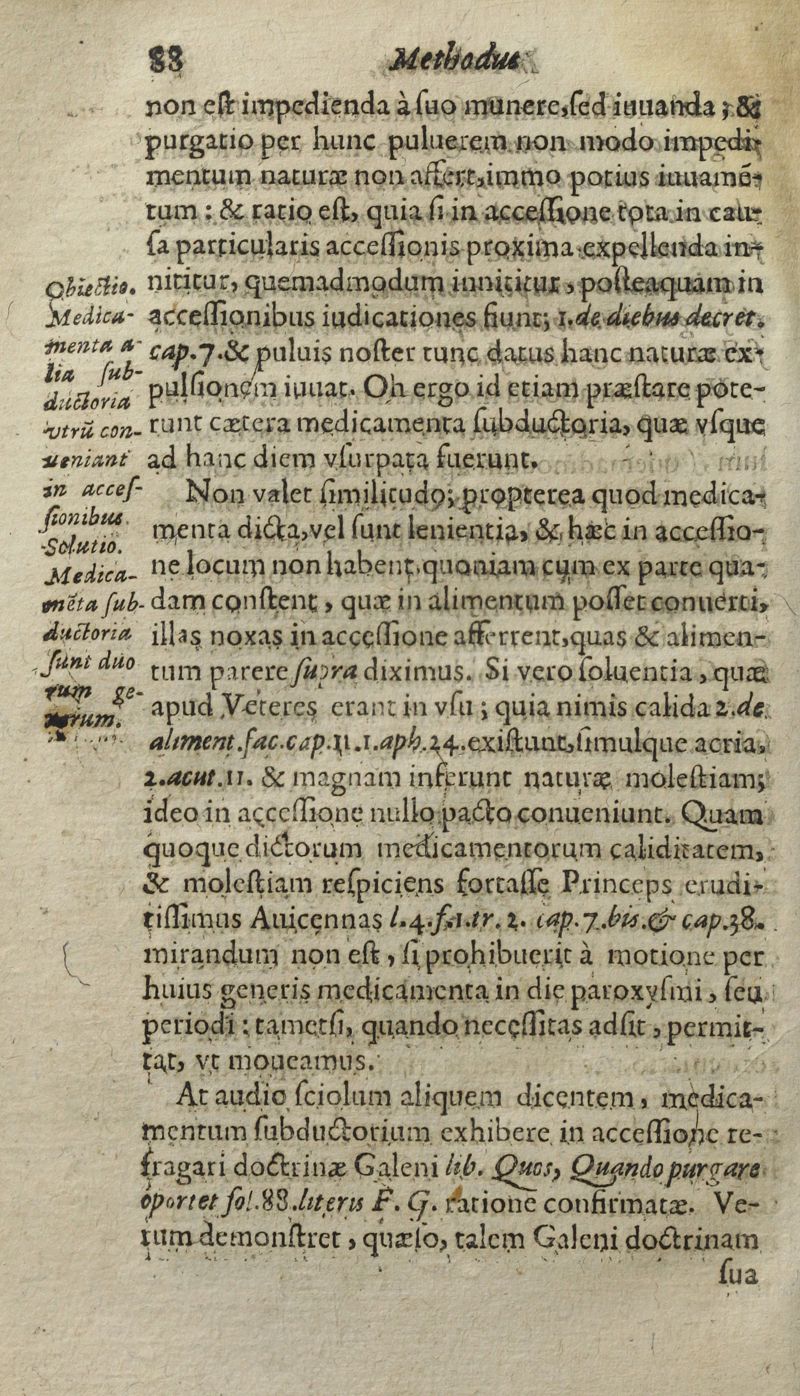 88 Methodus
non eſt impedienda à ſuo munere, ſed iuuanda; &
purgatio per hunc puluerem non modo impedi-
mentum naturæ non affert, immo potius iuuamē-
tum: & ratio eſt, quia ſi in acceſſione tota in cau-
ſa particularis acceſſionis proxima expellenda in-
nititur, quemadmodum innititur, poſteaquam in
acceſſionibus iudicationes fiunt; 1. de diebus decret.
cap. 7. & puluis noſter tunc datus hanc naturæ ex-
pulſionem iuuat. Oh ergo id etiam præſtare pote-
runt cætera medicamenta ſubductoria, quæ vſque
ad hanc diem vſurpata fuerunt.
Obiectio.
Medica-
menta a-
lia ſub-
ductoria
vtrū con-
ueniant
in acceſ-
ſionibus.
Solutio.
Medica-
mēta ſub-
ductoria
ſunt duo
rum ge-
nerum.
Non valet ſimilitudo; propterea quod medica-
menta dicta, vel ſunt lenientia, & hæc in acceſſio-
ne locum non habent, quoniam cum ex parte qua-
dam conſtent, quæ in alimentum poſſet conuerti,
illas noxas in acceſſione afferrent, quas & alimen-
tum parere ſupra diximus. Si vero ſoluentia, quæ
apud Veteres erant in vſu; quia nimis calida 2. de
aliment. fac. cap. 31. 1. aph. 24. exiſtunt, ſimulque acria,
2. acut. 11. & magnam inferunt naturæ moleſtiam;
ideo in acceſſione nullo pacto conueniunt. Quam
quoque dictorum medicamentorum caliditatem,
& moleſtiam reſpiciens fortaſſe Princeps erudi-
tiſſimus Auicennas l. 4. f. 1. tr. 2. cap. 7. bis. & cap. 38.
mirandum non eſt, ſi prohibuerit à motione per
huius generis medicamenta in die paroxyſmi, ſeu
periodi: tametſi, quando neceſſitas adſit, permit-
tat, vt moueamus.
At audio ſciolum aliquem dicentem, medica-
mentum ſubductorium exhibere in acceſſione re-
fragari doctrinæ Galeni lib. Quos, Quando purgare
oportet fol. 88. literis F. G. ratione confirmatæ. Ve-
rum demonſtret, quæſo, talem Galeni doctrinam
ſua